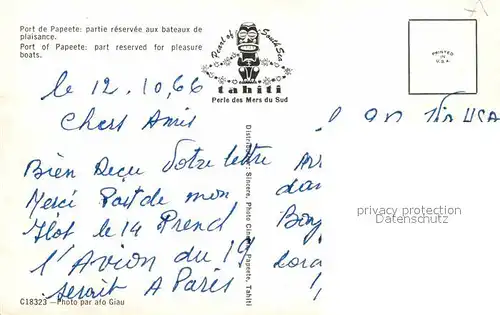 Port de Papeete: partie réservée aux bateaux de
plaisance.
Port of Papeete: part reserved for pleasure
boats.
Pearl of South Sea
tahiti
Perle des Mers du Sud
PRINTED
IN
U.S.A.
le 12.10.66
Chers Amis
Bien Reçu Votre lettre
Merci Part de mon
Ilot le 14 Prend
l'Avion du 19
serait A Paris
USA
dan
Bonj
privacy protection
Datenschutz
Distributeur: Sincere, Photo Ciné, Papeete, Tahiti
C18323 — Photo par afo Giau